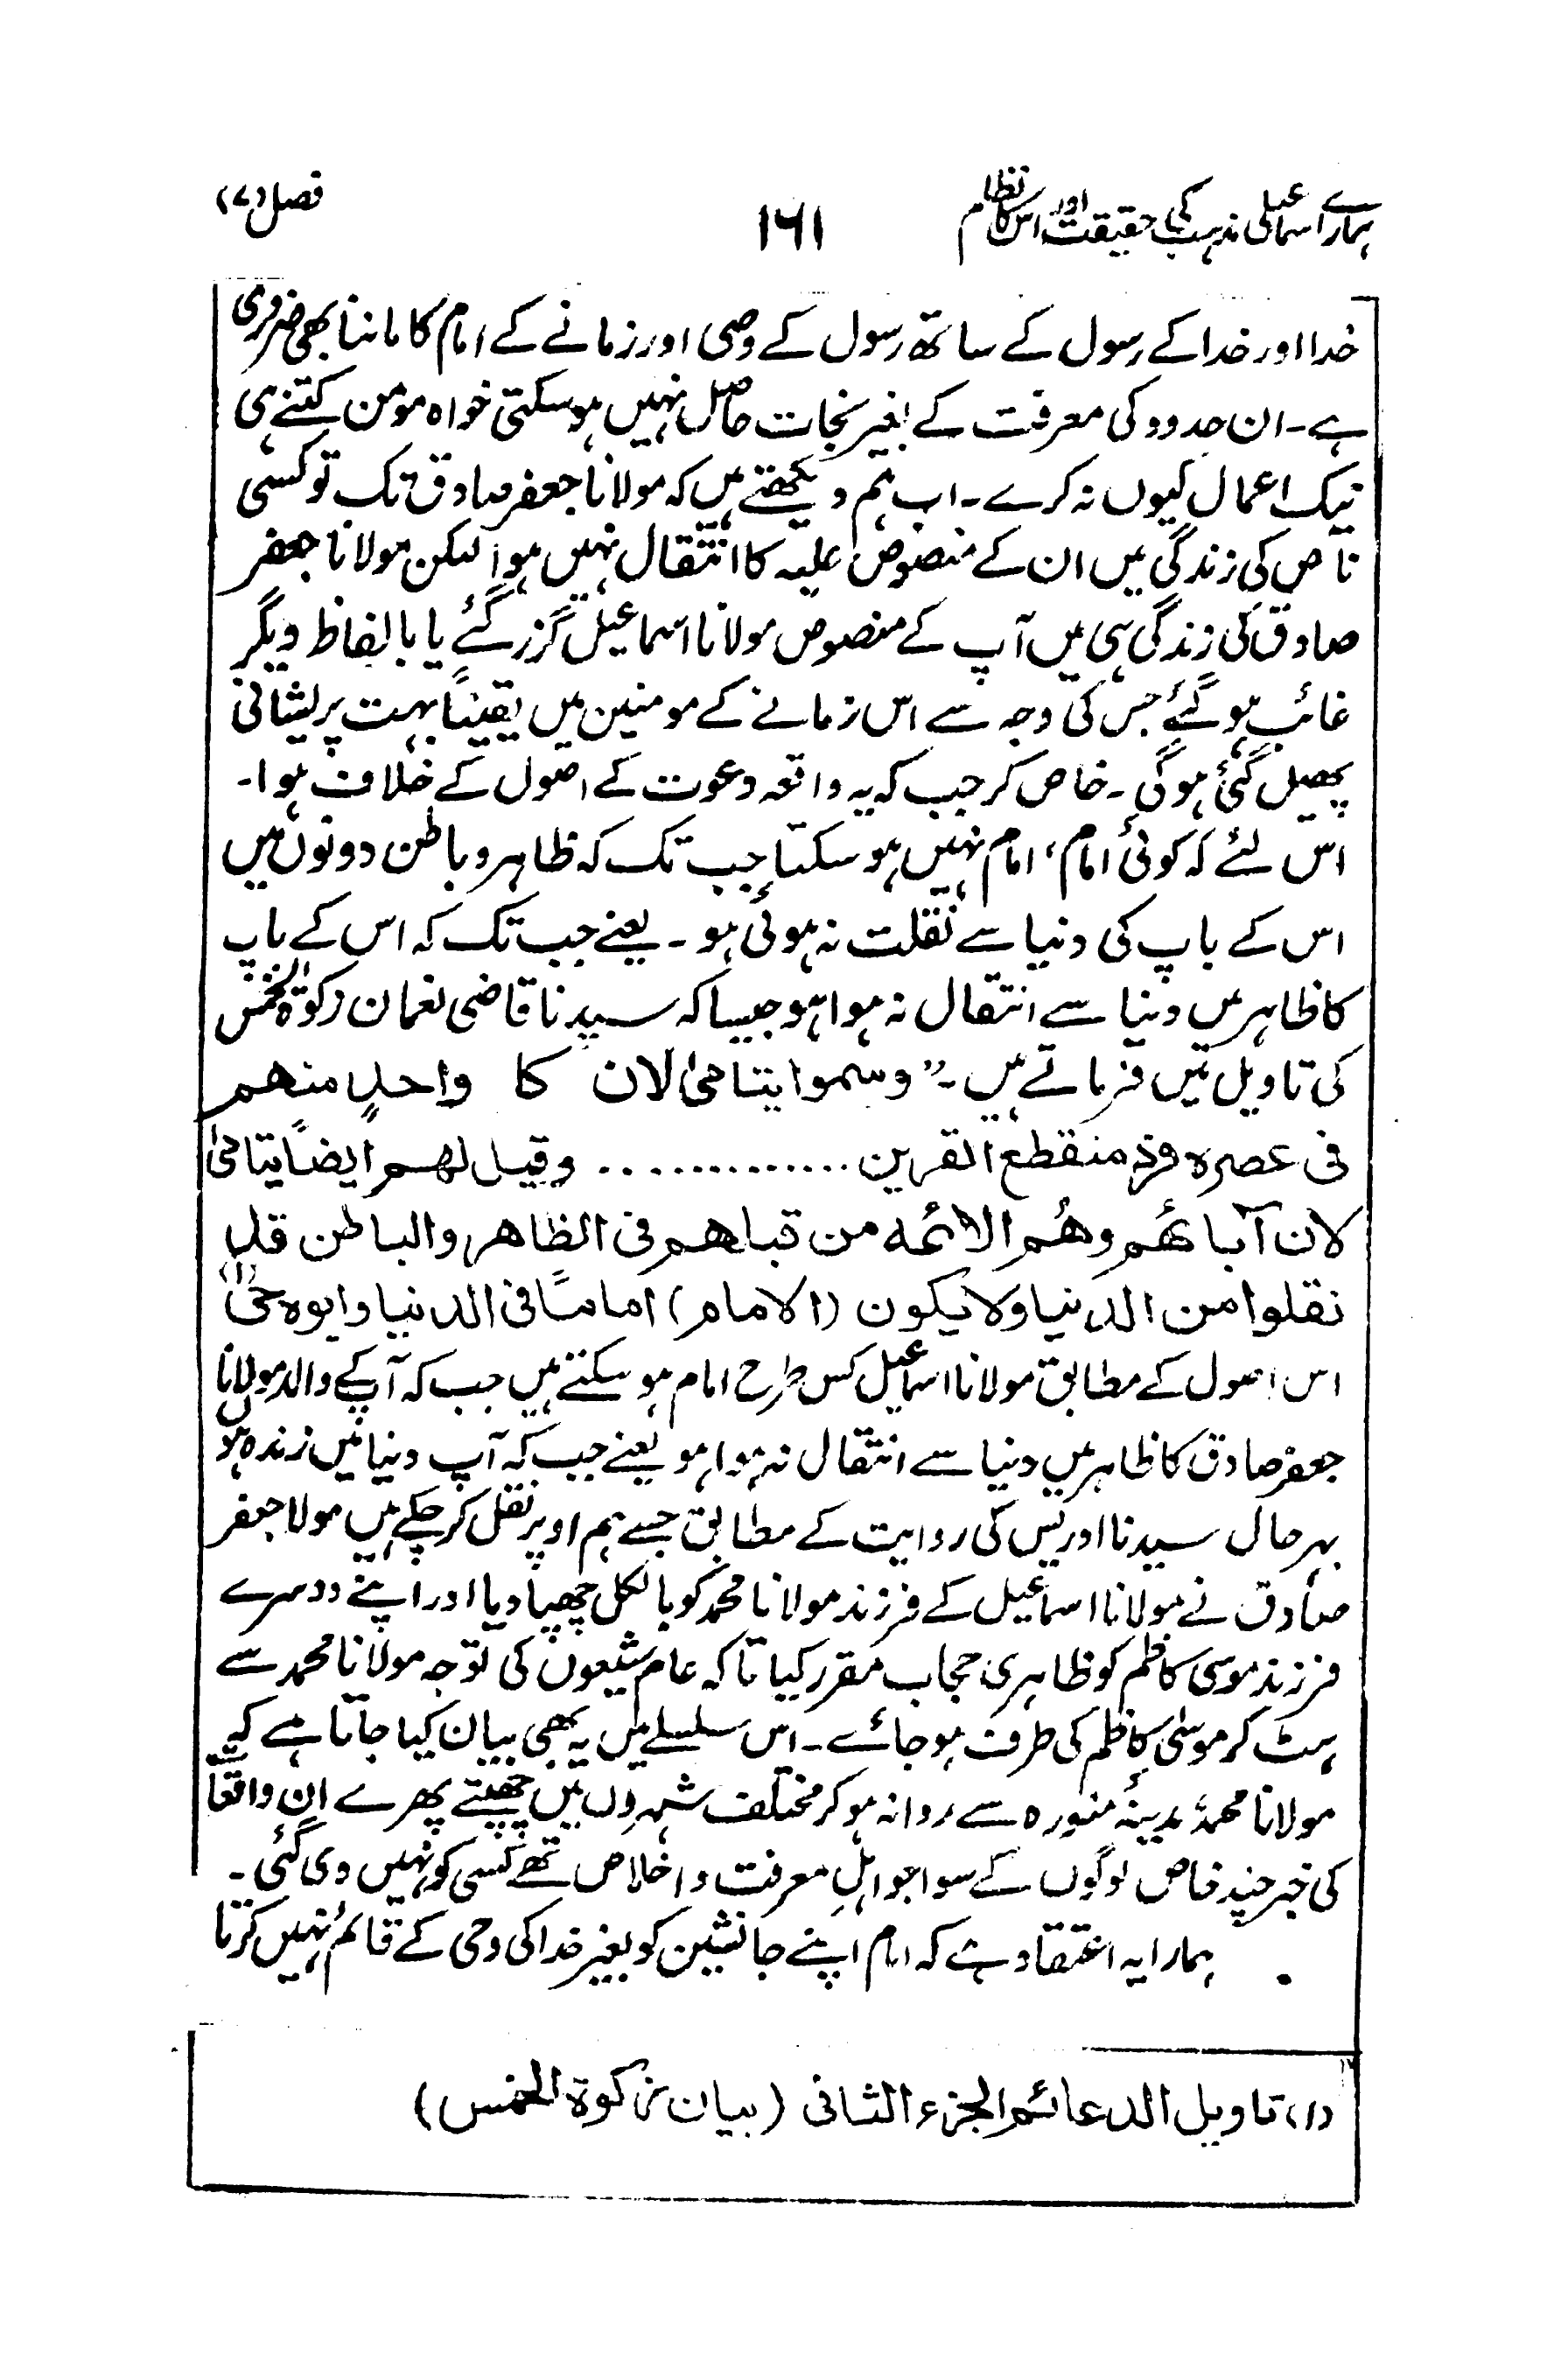 ہمارے اسماعیلی مذہب کی حقیقت اور اس کا نظام
۱۶۱
فصل (۷)
خدا اور خدا کے رسول کے ساتھ رسول کے وصی اور زمانے کے امام کا ماننا بھی ضروری
ہے۔ ان حدود کی معرفت کے بغیر نجات حاصل نہیں ہو سکتی خواہ مومن کتنے ہی
نیک اعمال کیوں نہ کرے۔ اب ہم دیکھتے ہیں کہ مولانا جعفر صادق تک تو کسی
ناص کی زندگی میں ان کے منصوص علیہ کا انتقال نہیں ہوا لیکن مولانا جعفر
صادق کی زندگی ہی میں آپ کے منصوص مولانا اسماعیل گزر گئے یا بالفاظ دیگر
غائب ہو گئے جس کی وجہ سے اس زمانے کے مومنین میں یقیناً بہت پریشانی
پھیل گئی ہوگی۔ خاص کر جب کہ یہ واقعہ دعوت کے اصول کے خلاف ہوا۔
اس لئے کہ کوئی امام، امام نہیں ہو سکتا جب تک کہ ظاہر و باطن دونوں میں
اس کے باپ کی دنیا سے نقلت نہ ہوئی ہو۔ یعنے جب تک کہ اس کے باپ
کا ظاہر میں دنیا سے انتقال نہ ہوا ہو جیسا کہ سیدنا قاضی نعمان زکوٰۃ الخمس
کی تاویل میں فرماتے ہیں۔" وسموا یتامیٰ لان کا واحدٍ منھم
فی عصرہ فرد منقطع القرین .............. وقیل لھم ایضاً یتامیٰ
لان آبائھم وھُم الائمہ من قبلھم فی الظاھر والباطن قد
نقلوا من الدنیا ولا یکون (الامام) اماماً فی الدنیا وابوہ حیٌّ (۱)
اس اصول کے مطابق مولانا اسماعیل کس طرح امام ہو سکتے ہیں جب کہ آپ کے والد مولانا
جعفر صادق کا ظاہر میں دنیا سے انتقال نہ ہوا ہو یعنے جب کہ آپ دنیا میں زندہ ہوں
بہر حال سیدنا ادریس کی روایت کے مطابق جسے ہم اوپر نقل کر چکے ہیں مولا جعفر
صادق نے مولانا اسماعیل کے فرزند مولانا محمد کو بالکل چھپا دیا اور اپنے دوسرے
فرزند موسی کاظم کو ظاہری حجاب مقرر کیا تاکہ عام شیعوں کی توجہ مولانا محمد سے
ہٹ کر موسیٰ کاظم کی طرف ہو جائے۔ اس سلسلے میں یہ بھی بیان کیا جاتا ہے کہ
مولانا محمدؑ مدینۂ منورہ سے روانہ ہو کر مختلف شہروں میں چھپتے پھرے ان واقعات
کی خبر چند خاص لوگوں کے سوا جو اہلِ معرفت و اخلاص تھے کسی کو نہیں دی گئی۔
ہمارا یہ اعتقاد ہے کہ امام اپنے جانشین کو بغیر خدا کی وحی کے قائم نہیں کرتا
(۱) تاویل الدعائم الجزء الثانی (بیان زکوۃ الخمس)